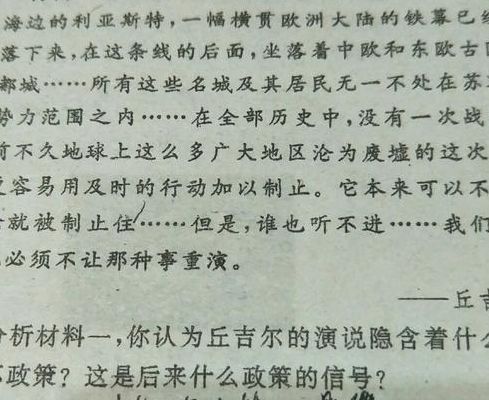 海边的利亚斯特，一幅横贯欧洲大陆的铁幕已
落下来，在这条线的后面，坐落着中欧和东欧古
都城……所有这些名城及其居民无一不处在苏
势力范围之内……在全部历史中，没有一次战
前不久地球上这么多广大地区沦为废墟的这次
容易用及时的行动加以制止。它本来可以不
就被制止住……但是，谁也听不进……我们
必须不让那种事重演。
——丘吉
分析材料一，你认为丘吉尔的演说隐含着什么
政策？这是后来什么政策的信号？